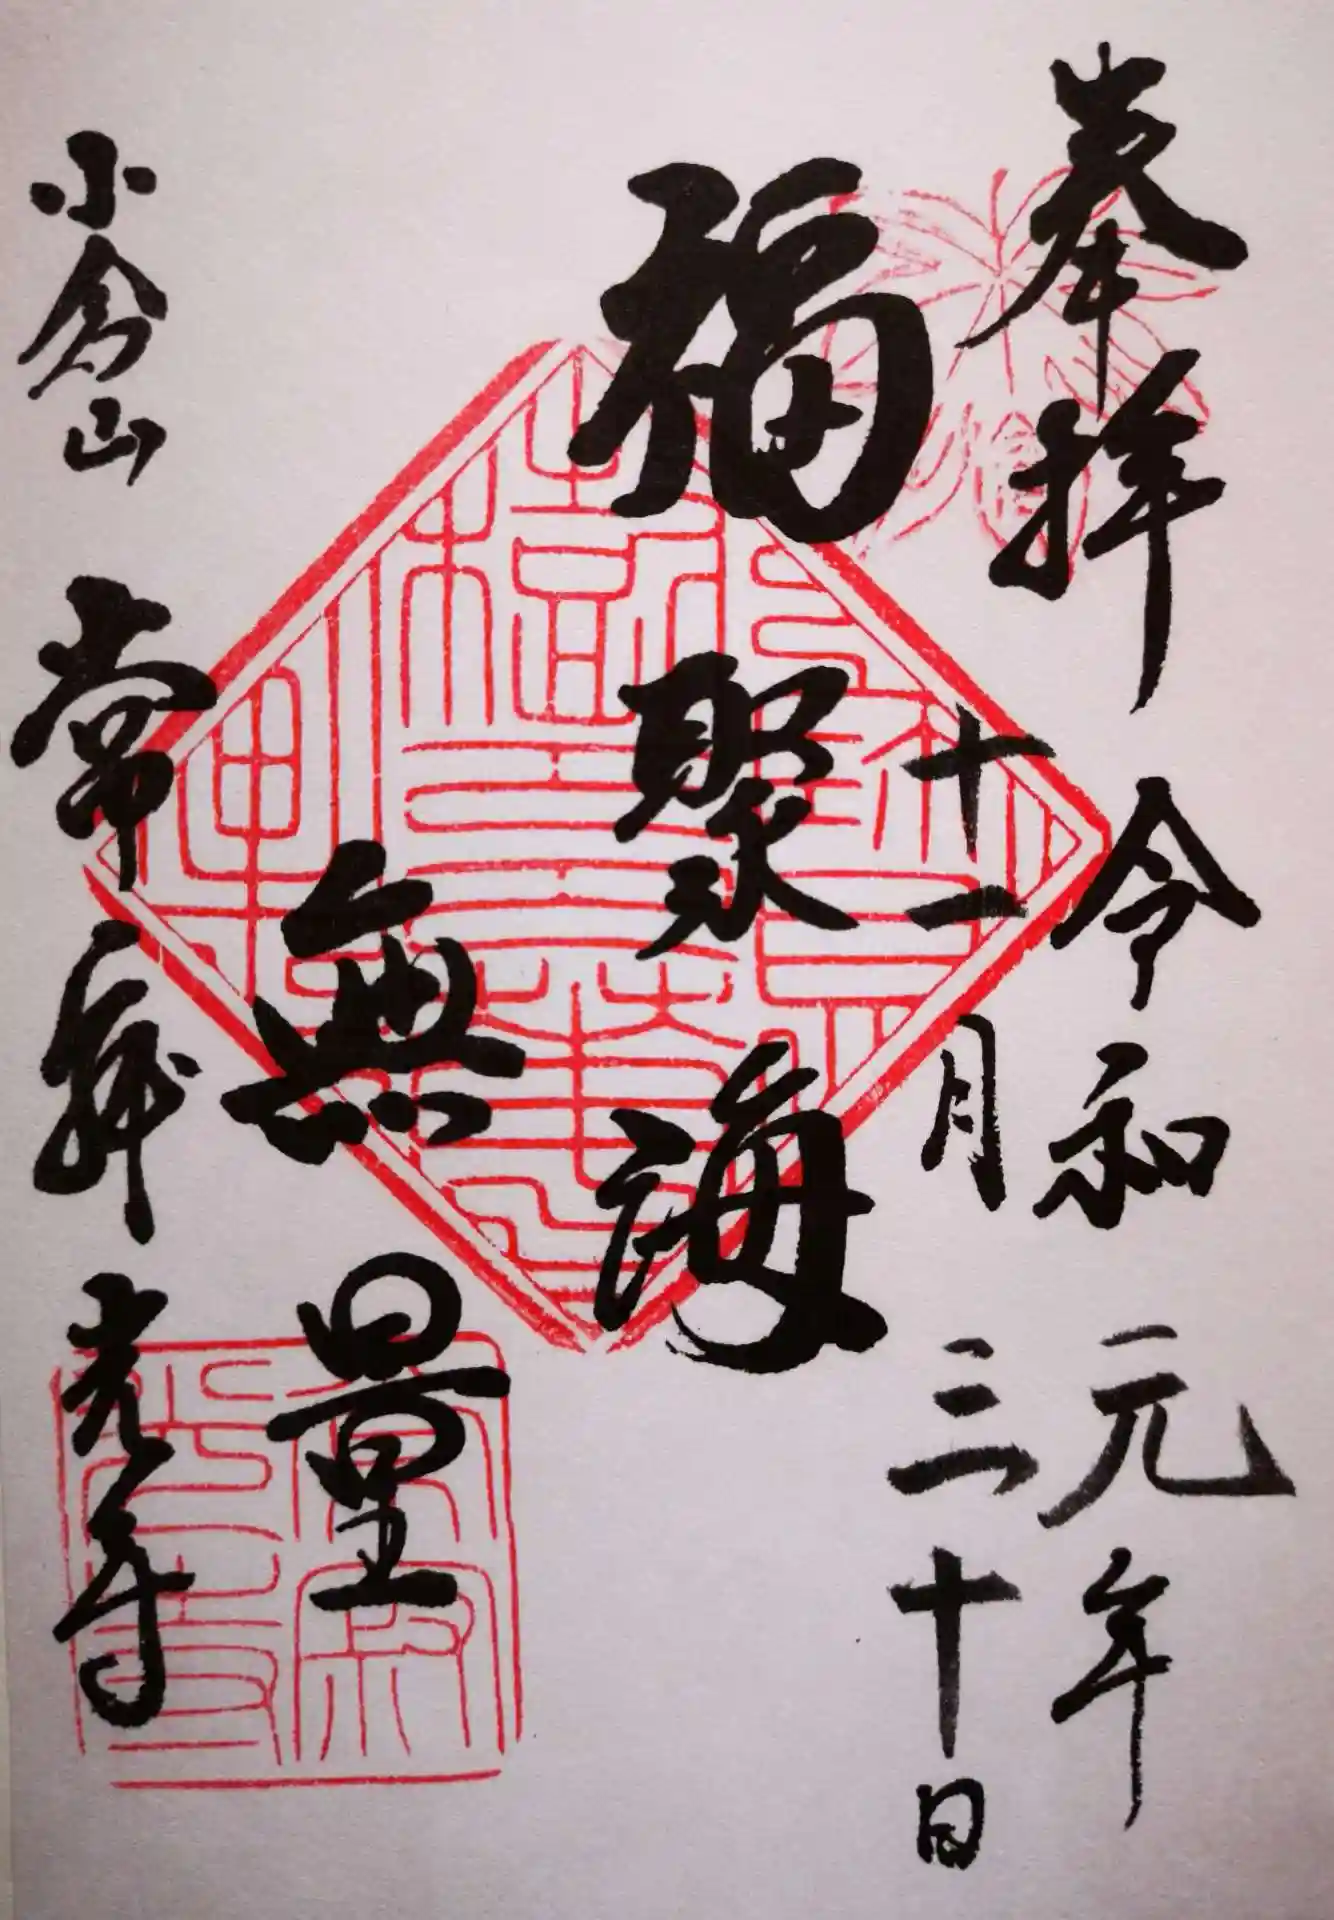 奉拝
令和元年
十一月三十日
福聚海
無量
小倉山
常寂光寺